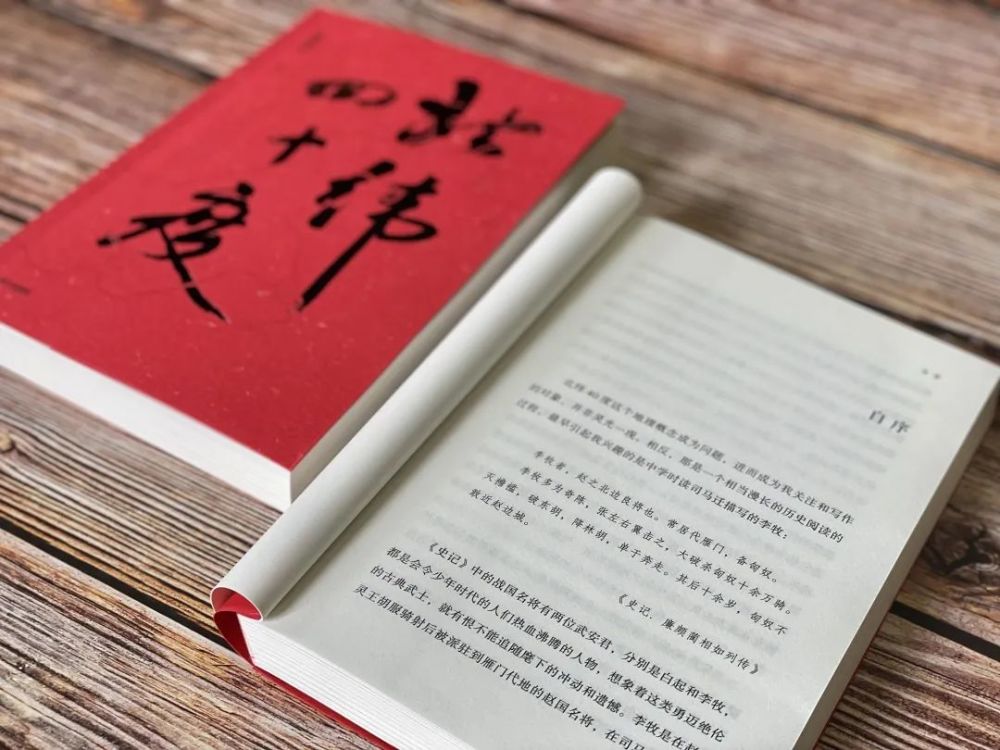 北纬
四十度
自序
北纬40度这个地理概念成为问题，进而成为我关注和写作
的对象，并非灵光一现，相反，那是一个相当漫长的历史阅读的
过程，最早引起我兴趣的是中学时读司马迁描写的李牧：
李牧者，赵之北边良将也。常居代雁门，备匈奴。
李牧多为奇陈，张左右翼击之，大破杀匈奴十余万骑。
灭襜褴，破东胡，降林胡，单于奔走。其后十余岁，匈奴不
敢近赵边城。
《史记·廉颇蔺相如列传》
《史记》中的战国名将有两位武安君，分别是白起和李牧，
都是会令少年时代的人们热血沸腾的人物，想象着这类勇迈绝伦
的古典武士，就有恨不能追随麾下的冲动和遗憾。李牧是在赵
灵王胡服骑射后被派驻到雁门代地的赵国名将，在司马